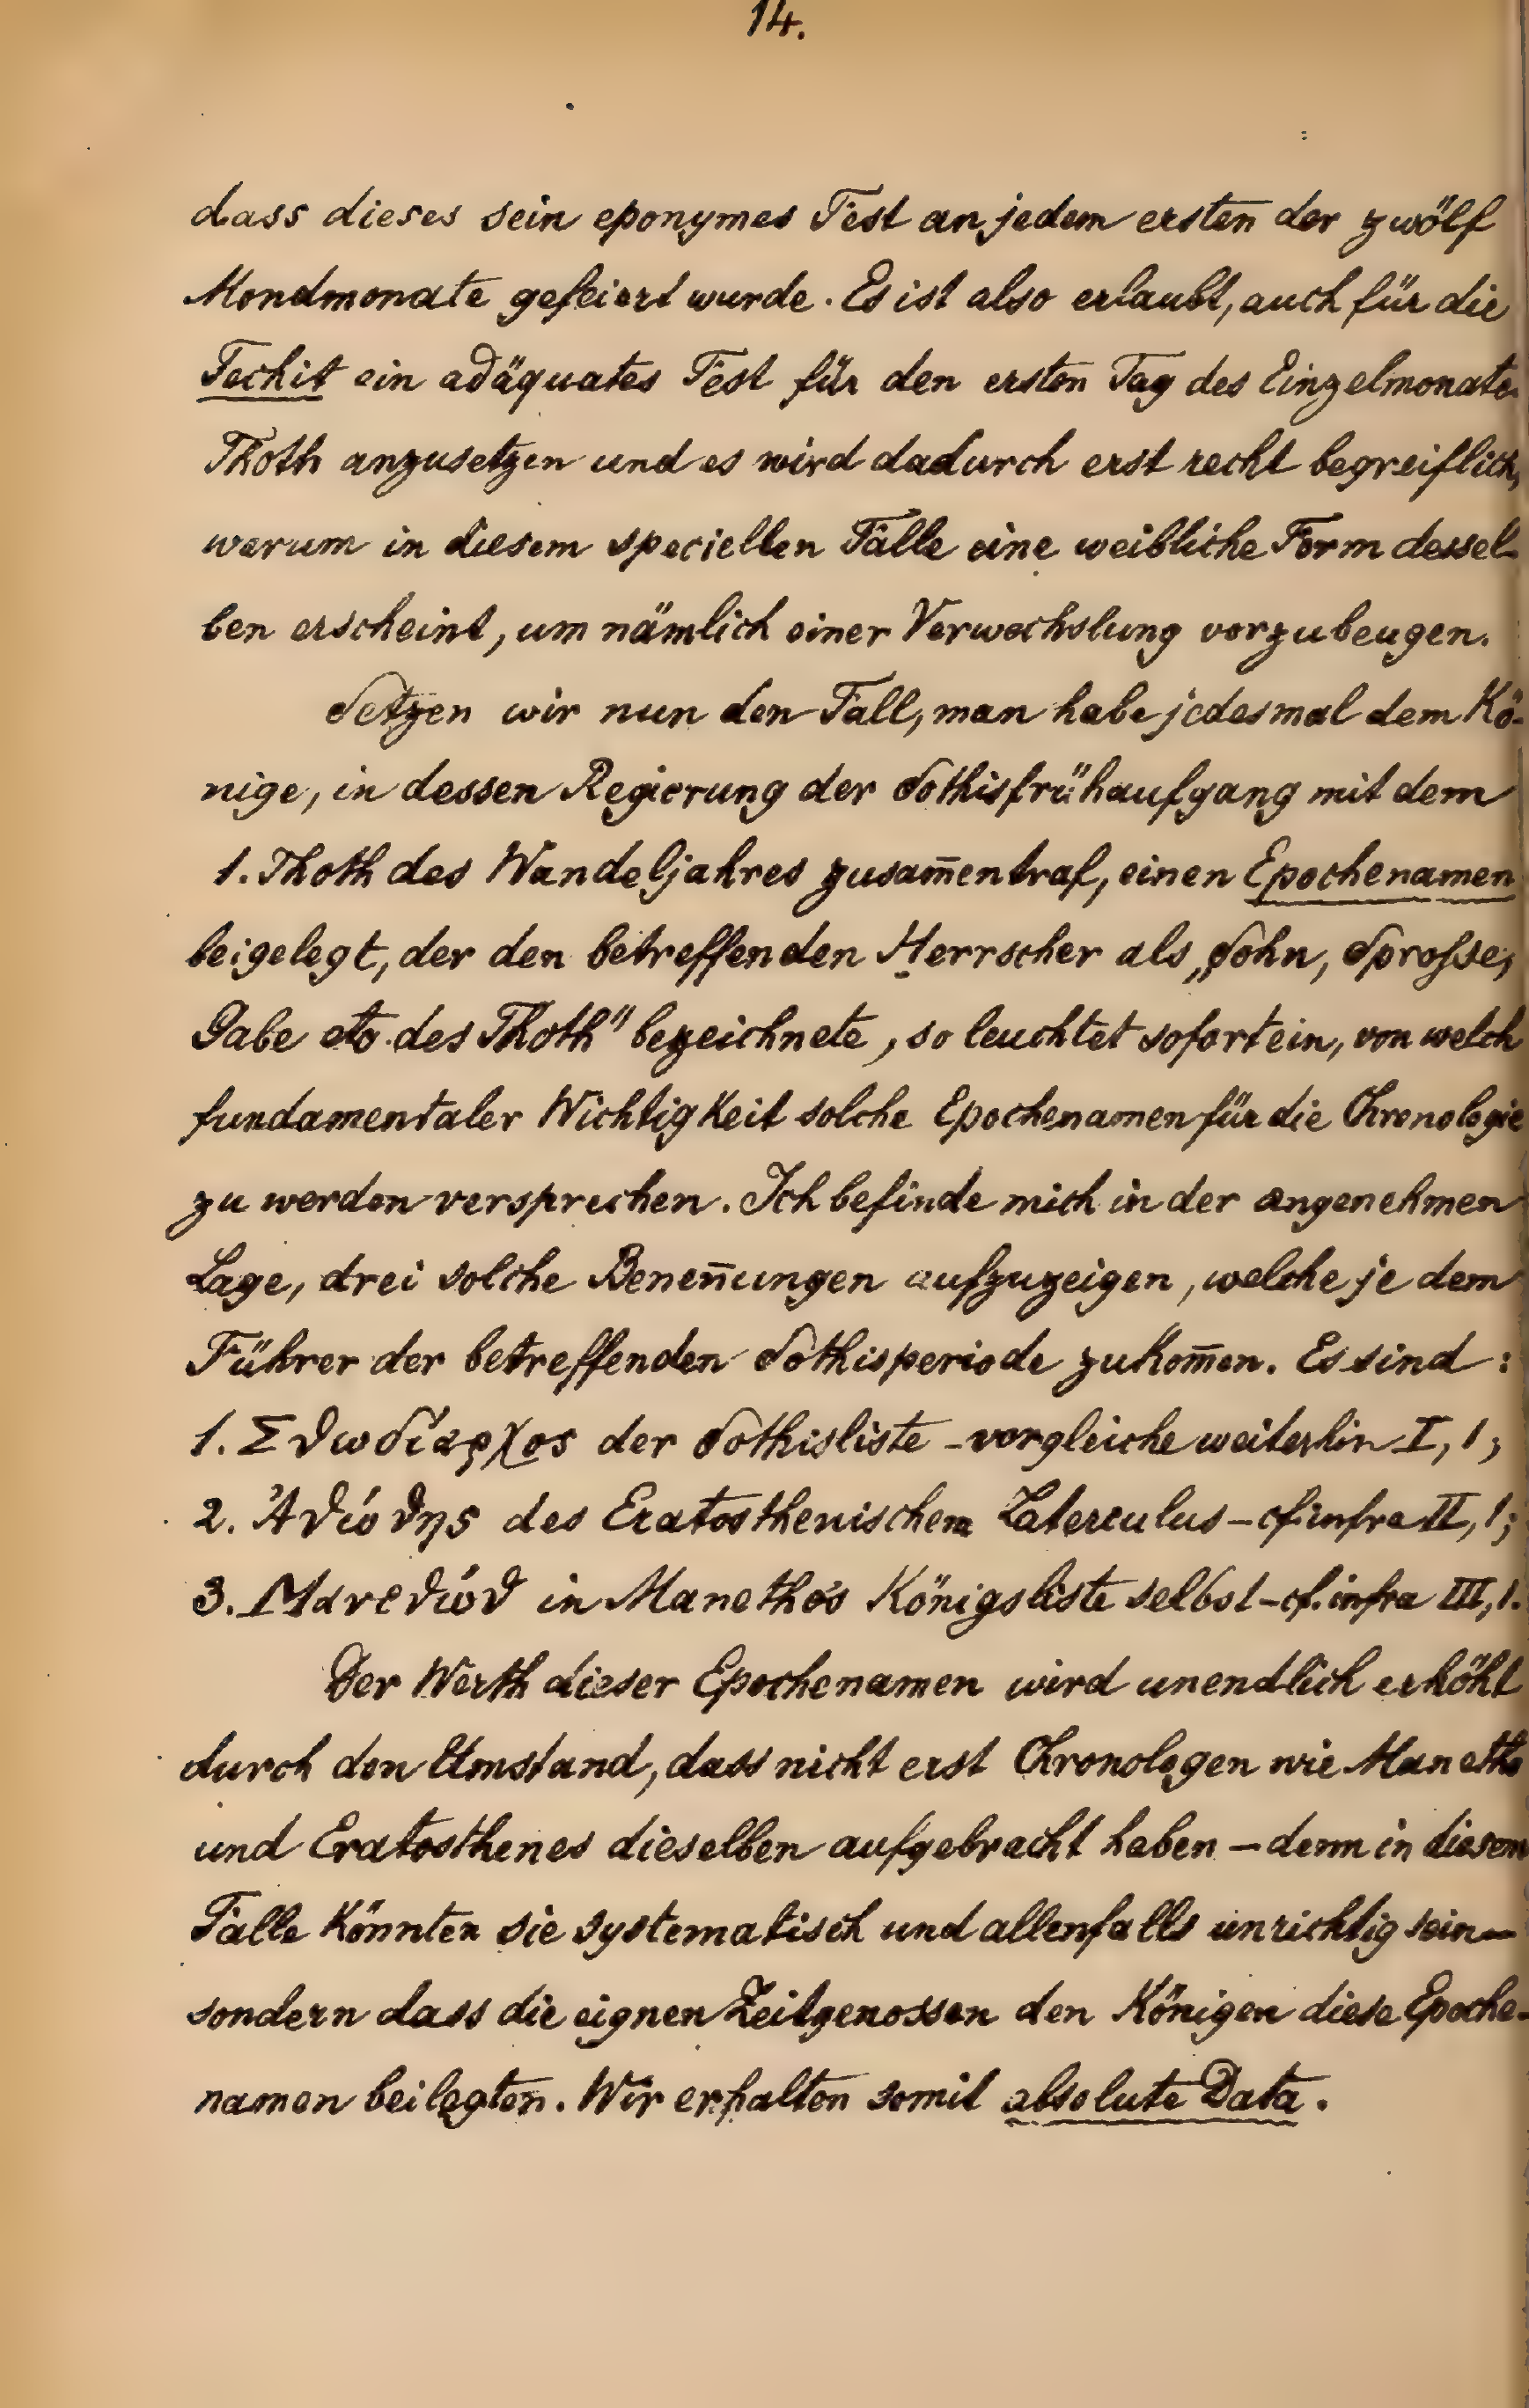 14.
dass dieses sein eponymes Fest an jedem ersten der zwölf
Mondmonate gefeiert wurde. Es ist also erlaubt, auch für die
Techit ein adäquates Fest für den ersten Tag des Einzelmonats
Thoth anzusetzen und es wird dadurch erst recht begreiflich,
warum in diesem speciellen Fälle eine weibliche Form dessel-
ben erscheint, um nämlich einer Verwechslung vorzubeugen.
Setzen wir nun den Fall, man habe jedesmal dem Kö-
nige, in dessen Regierung der Sothisfrühaufgang mit dem
1. Thoth des Wandeljahres zusam̄entraf, einen Epochenamen
beigelegt, der den betreffenden Herrscher als „Sohn, Sprosse,
Gabe etc. des Thoth" bezeichnete, so leuchtet sofort ein, von welch
fundamentaler Wichtigkeit solche Epochenamen für die Chronologie
zu werden versprechen. Ich befinde mich in der angenehmen
Lage, drei solche Benen̄ungen aufzuzeigen, welche je dem
Führer der betreffenden Sothisperiode zukom̄en. Es sind:
1. Σϑωδίαρχος der Sothisliste - vergleiche weiterhin I, 1;
2. Ἀϑώϑης des Eratosthenischen Laterculus - cf. infra II, 1;
3. Μανεϑώϑ in Manetho's Königsliste selbst - cf. infra III, 1.
Der Werth dieser Epochenamen wird unendlich erhöht
durch den Umstand, dass nicht erst Chronologen wie Manetho
und Eratosthenes dieselben aufgebracht haben – denn in diesem
Falle könnten sie systematisch und allenfalls unrichtig sein –
sondern dass die eignen Zeitgenossen den Königen diese Epoche-
namen beilegten. Wir erhalten somit absolute Data.